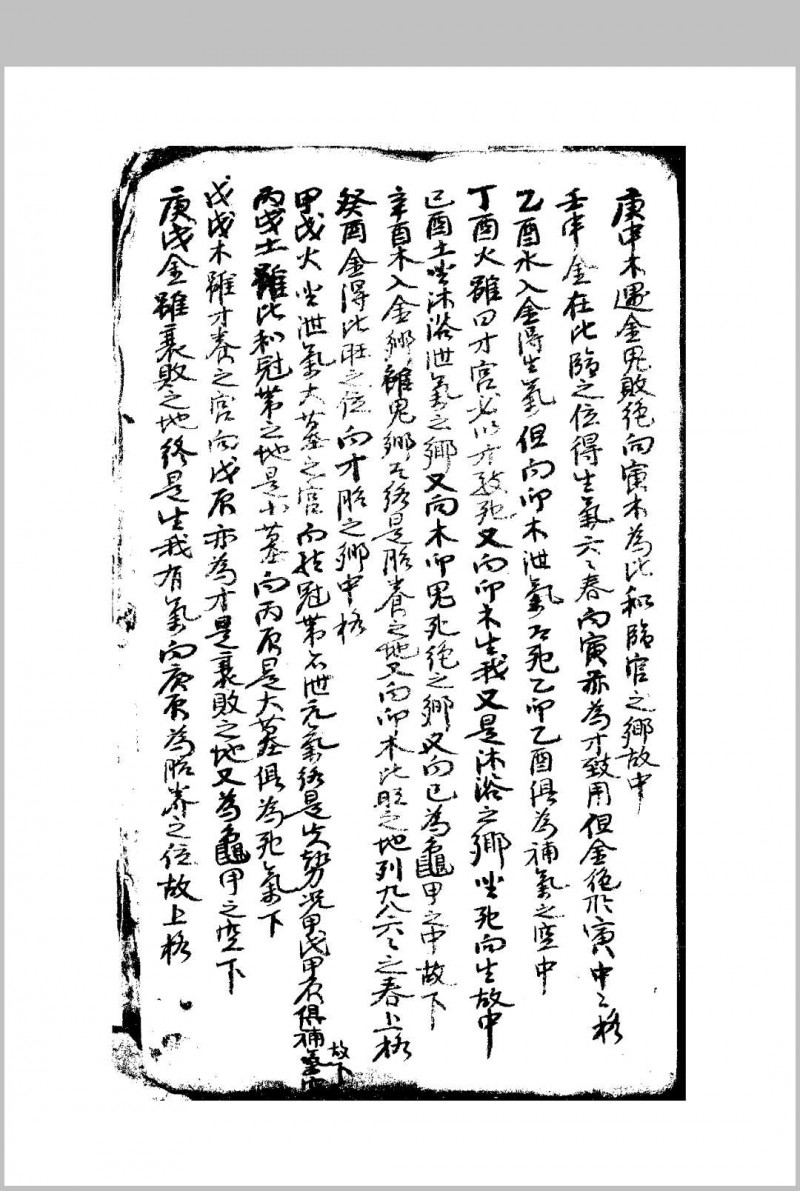 庚申木遇金鬼敗絕向寅木為比和臨官之鄉故中
壬申金在比臨之位得生氣六二春向寅亦為才致用但金絕於寅中之格
乙酉水入金得生氣但向卯木泄氣乙卯乙酉俱為補氣之空中
丁酉火雖曰才宮必以才致死又向卯木生我又是沐浴之鄉坐死向生故中
己酉土坐沐浴泄氣之鄉又向木卯鬼死絕之鄉又向己為龜甲之中故下
辛酉木入金鄉雖鬼鄉終是胎養之地又向卯木比旺之地列九八六之春上格
癸酉金得比旺之位向才胎之鄉中格
甲戌火坐泄氣大墓之宮向冠帶泄元氣終是失勢况甲戌甲辰俱補氣故下
丙戌土雖比和冠帶之地是小墓向丙辰是大墓俱為死氣下
戊戌木雖才養之宮向戊辰亦為才是衰敗之地又為龜甲之空下
庚戌金雖衰敗之地終是生我有氣向庚辰為胎養之位故上格